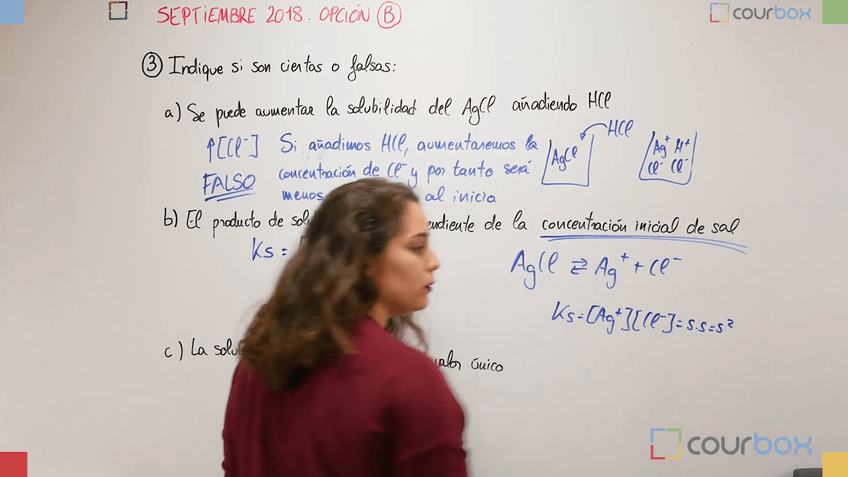 SEPTIEMBRE 2018. OPCIÓN B
courbox
3 Indique si son ciertas o falsas:
a) Se puede aumentar la solubilidad del AgCl añadiendo HCl
↑[Cl⁻] Si añadimos HCl, aumentaremos la
FALSO concentración de Cl⁻ y por tanto será
menos al inicio
HCl
AgCl
Ag⁺ H⁺
Cl⁻ Cl⁻
b) El producto de de la concentración inicial de sal
Ks =
AgCl ⇄ Ag⁺ + Cl⁻
Ks = [Ag⁺][Cl⁻] = s.s = s²
c) La valor único
courbox